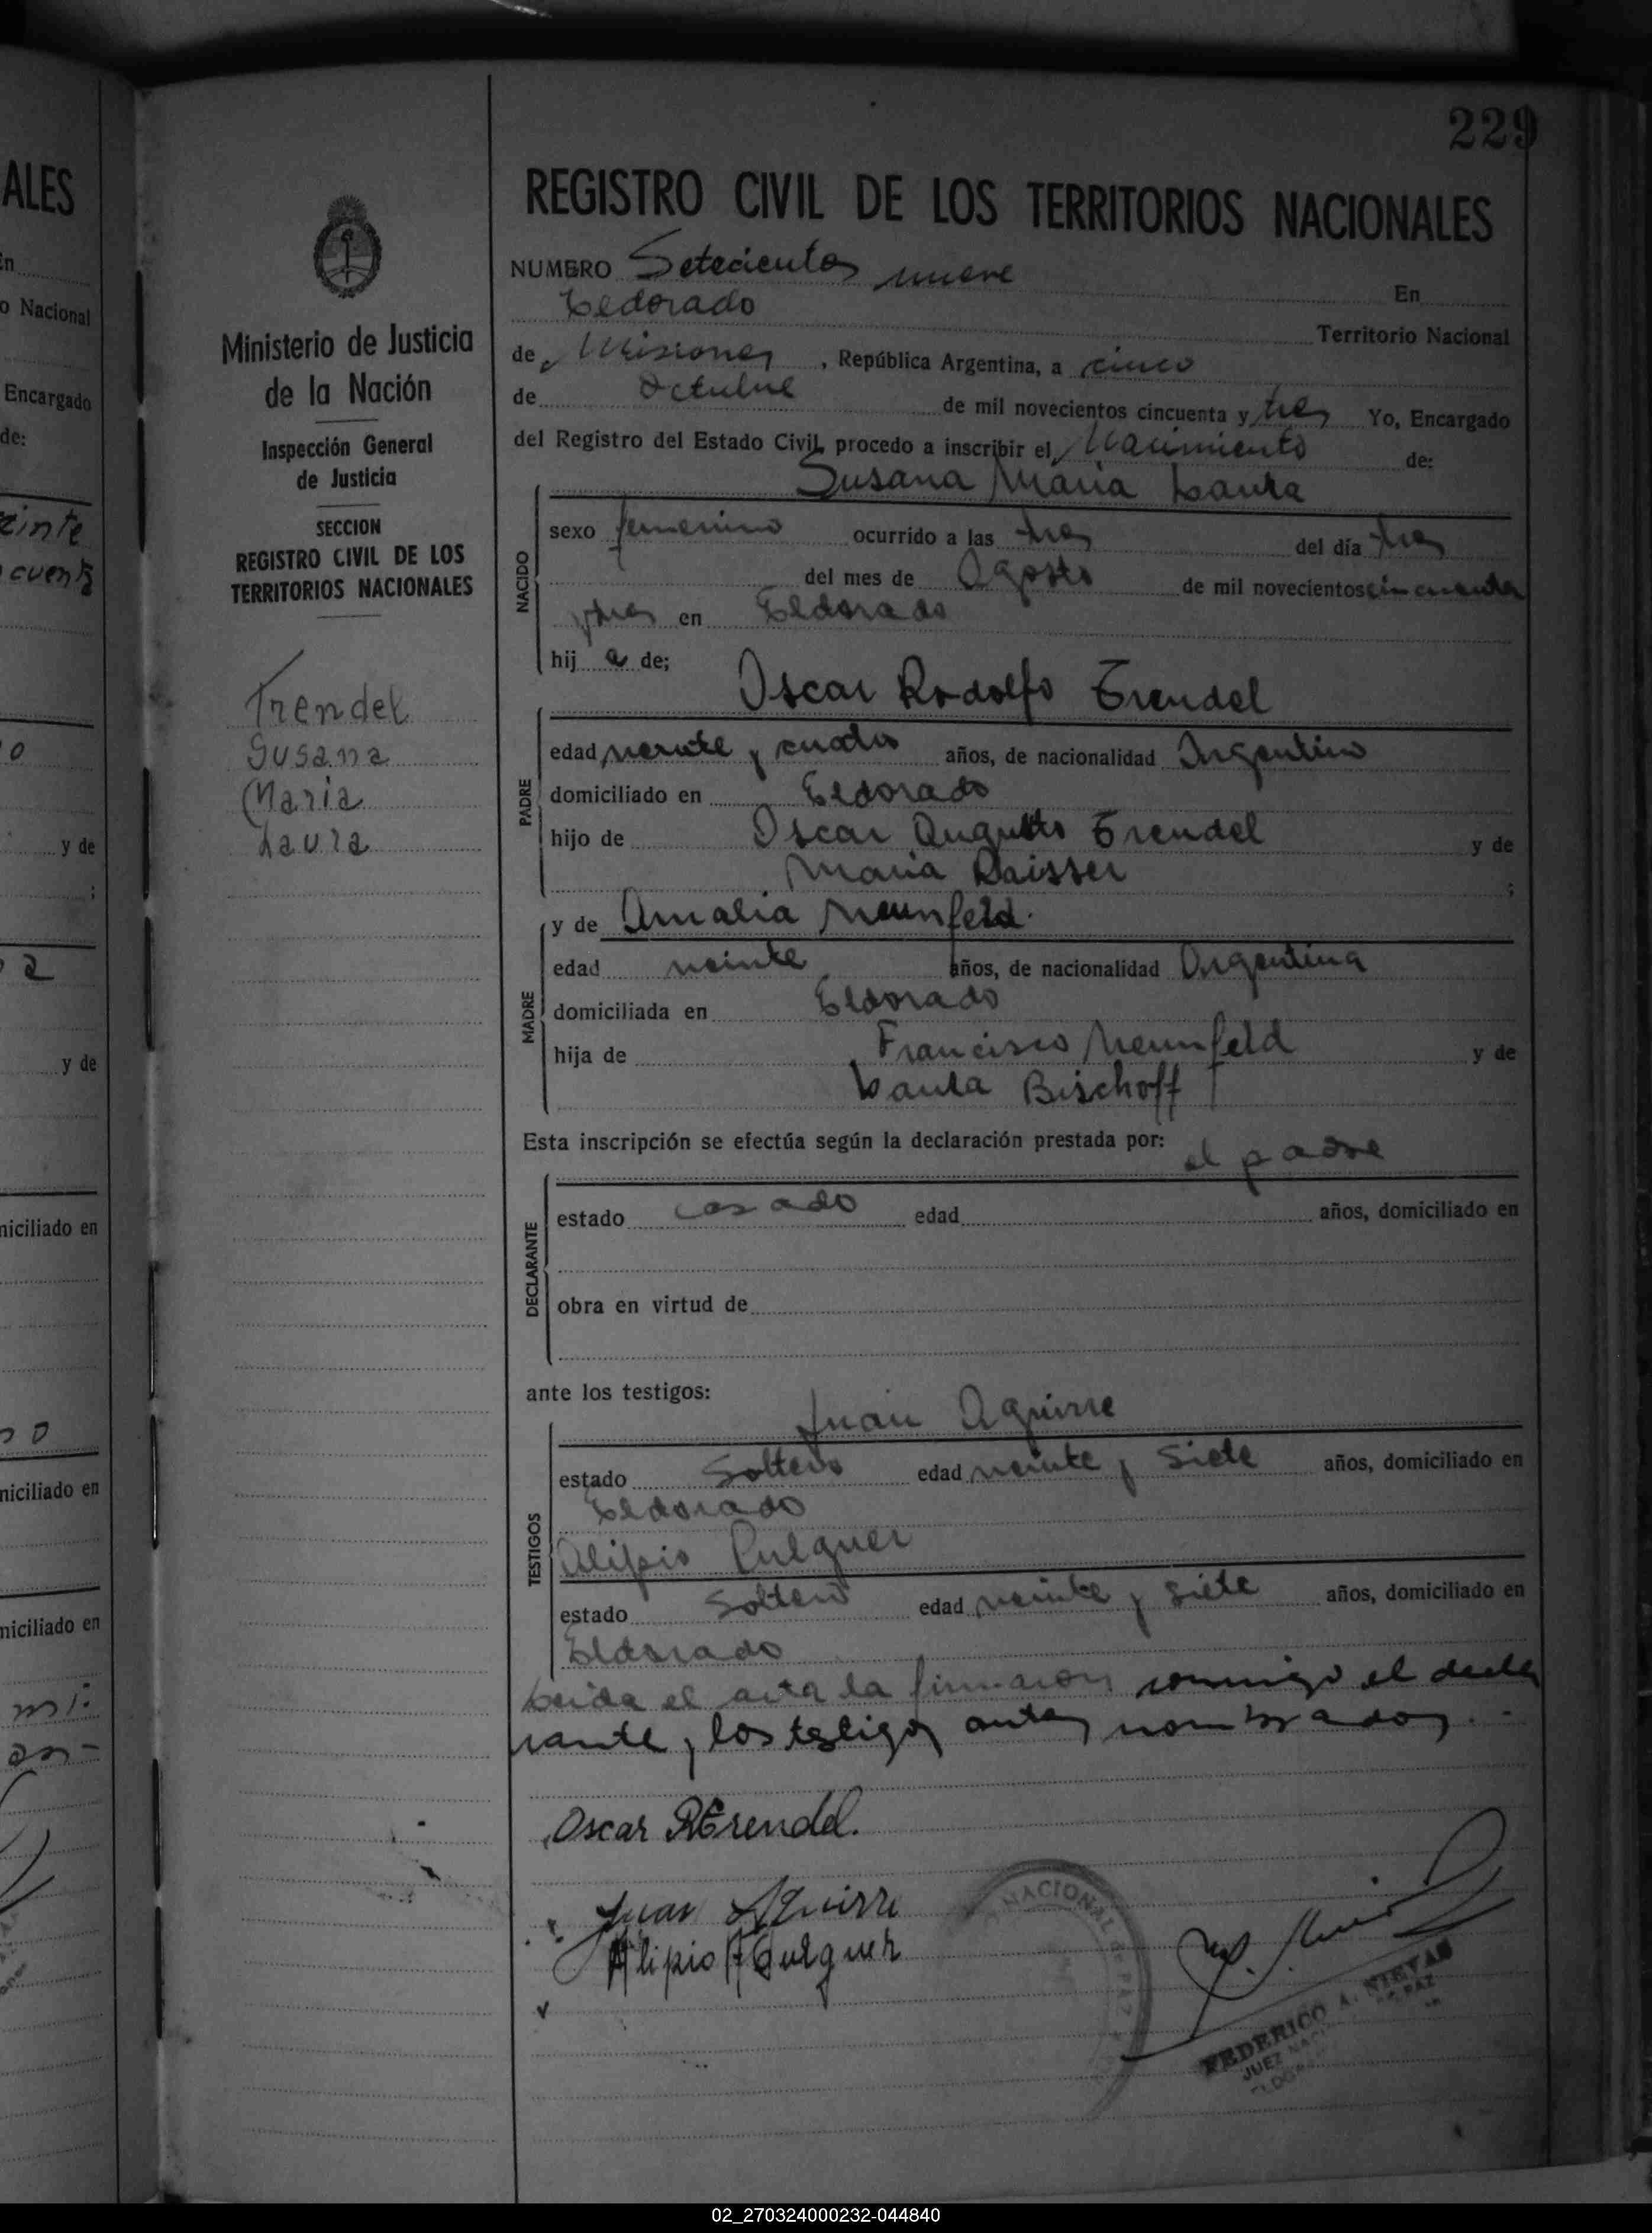 229
ALES
En
o Nacional
Encargado
de:
cinte
cuenta
o
y de
;
a
y de
niciliado en
o
niciliado en
niciliado en
mi:
an-
Ministerio de Justicia
de la Nación
Inspección General
de Justicia
SECCION
REGISTRO CIVIL DE LOS
TERRITORIOS NACIONALES
Trendel
Susana
Maria
Laura
REGISTRO CIVIL DE LOS TERRITORIOS NACIONALES
NUMERO Setecientos nueve En
Eldorado Territorio Nacional
de Misiones, República Argentina, a cinco
de Octubre de mil novecientos cincuenta y tres Yo, Encargado
del Registro del Estado Civil, procedo a inscribir el Nacimiento de:
Susana Maria Laura
NACIDO
sexo femenino ocurrido a las tres del día tres
del mes de Agosto de mil novecientos cincuenta
y tres en Eldorado
hij a de;
Oscar Rodolfo Trendel
PADRE
edad veinte y cuatro años, de nacionalidad Argentino
domiciliado en Eldorado
hijo de Oscar Augusto Trendel y de
Maria Raisser ;
y de Amalia Neunfeld.
MADRE
edad veinte años, de nacionalidad Argentina
domiciliada en Eldorado
hija de Francisco Neunfeld y de
Laura Bischoff
Esta inscripción se efectúa según la declaración prestada por: el padre
DECLARANTE
estado casado edad años, domiciliado en
obra en virtud de
ante los testigos:
Juan Aguirre
TESTIGOS
estado Soltero edad veinte y siete años, domiciliado en
Eldorado
Alipio Culguer
estado Soltero edad veinte y siete años, domiciliado en
Eldorado
Leida el acta la firmaron conmigo el decla
rante y los testigos antes nombrados. -
Oscar R Trendel.
Juan Aguirre
Alipio Culguer
NACIONAL de PAZ
FEDERICO A. NIEVAS
JUEZ NAC DE PAZ
ELDORA
02_270324000232-044840